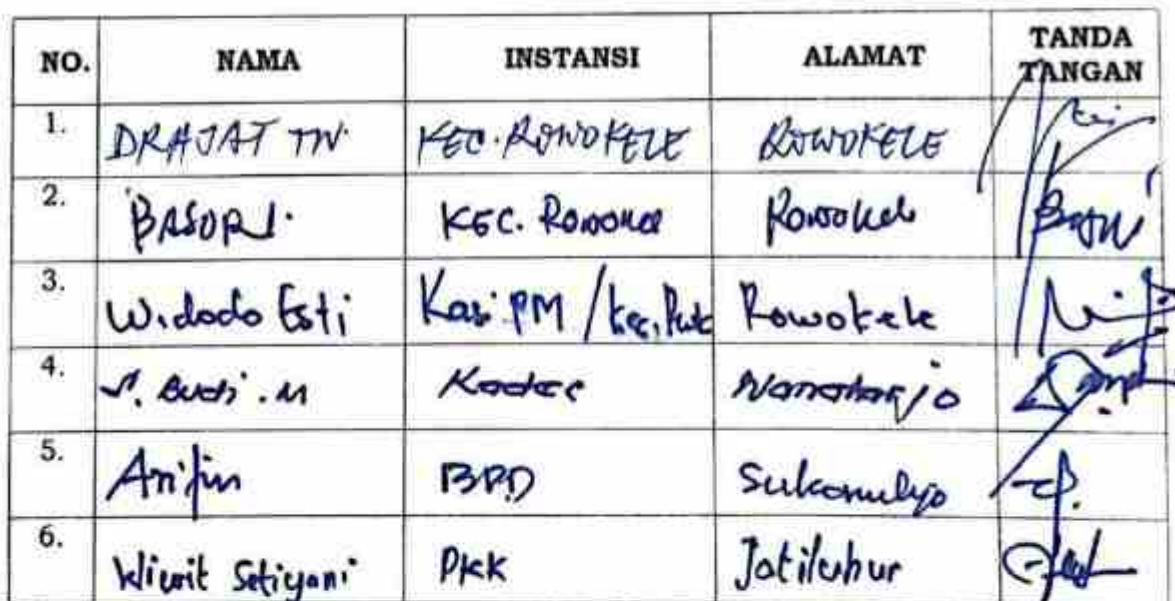 NO. NAMA INSTANSI ALAMAT TANDA TANGAN
1. DRAJAT TW. KEC. ROWOKELE ROWOKELE
2. BASORI. KEC. Rowokele Rowokele
3. Widodo Esti Kasi PM / Kec. Rowokele
4. S. Budi. M Wonoharjo
5. Arifin BPD Sukomulyo
6. Setiyani PKK Jatiluhur